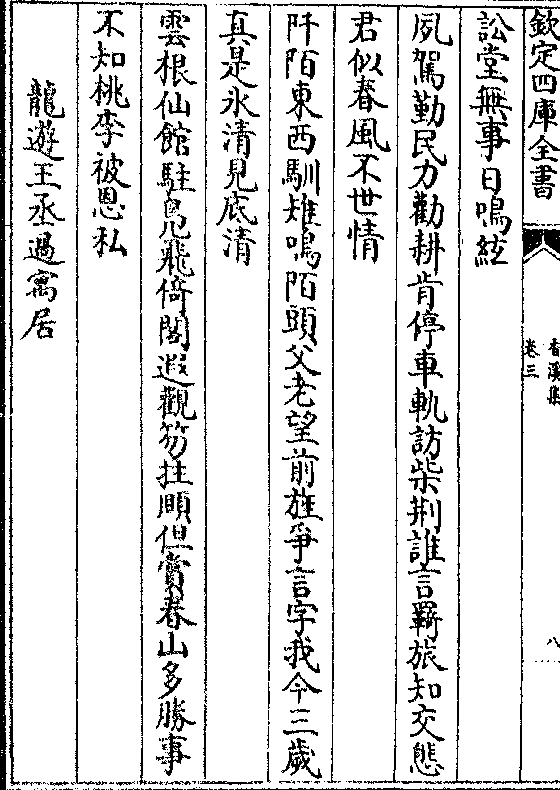 欽定四庫全書
香溪集
卷三
八
訟堂無事日鳴絃
夙駕勤民力勸耕肯停車軌訪柴荆誰言羈旅知交態
君似春風不世情
阡陌東西馴雉鳴陌頭父老望前旌爭言字我今三歲
真是氷清見底清
雲根仙館駐鳧飛倚閣遐觀笏拄頤但賞春山多勝事
不知桃李被恩私
龍遊王丞過寓居